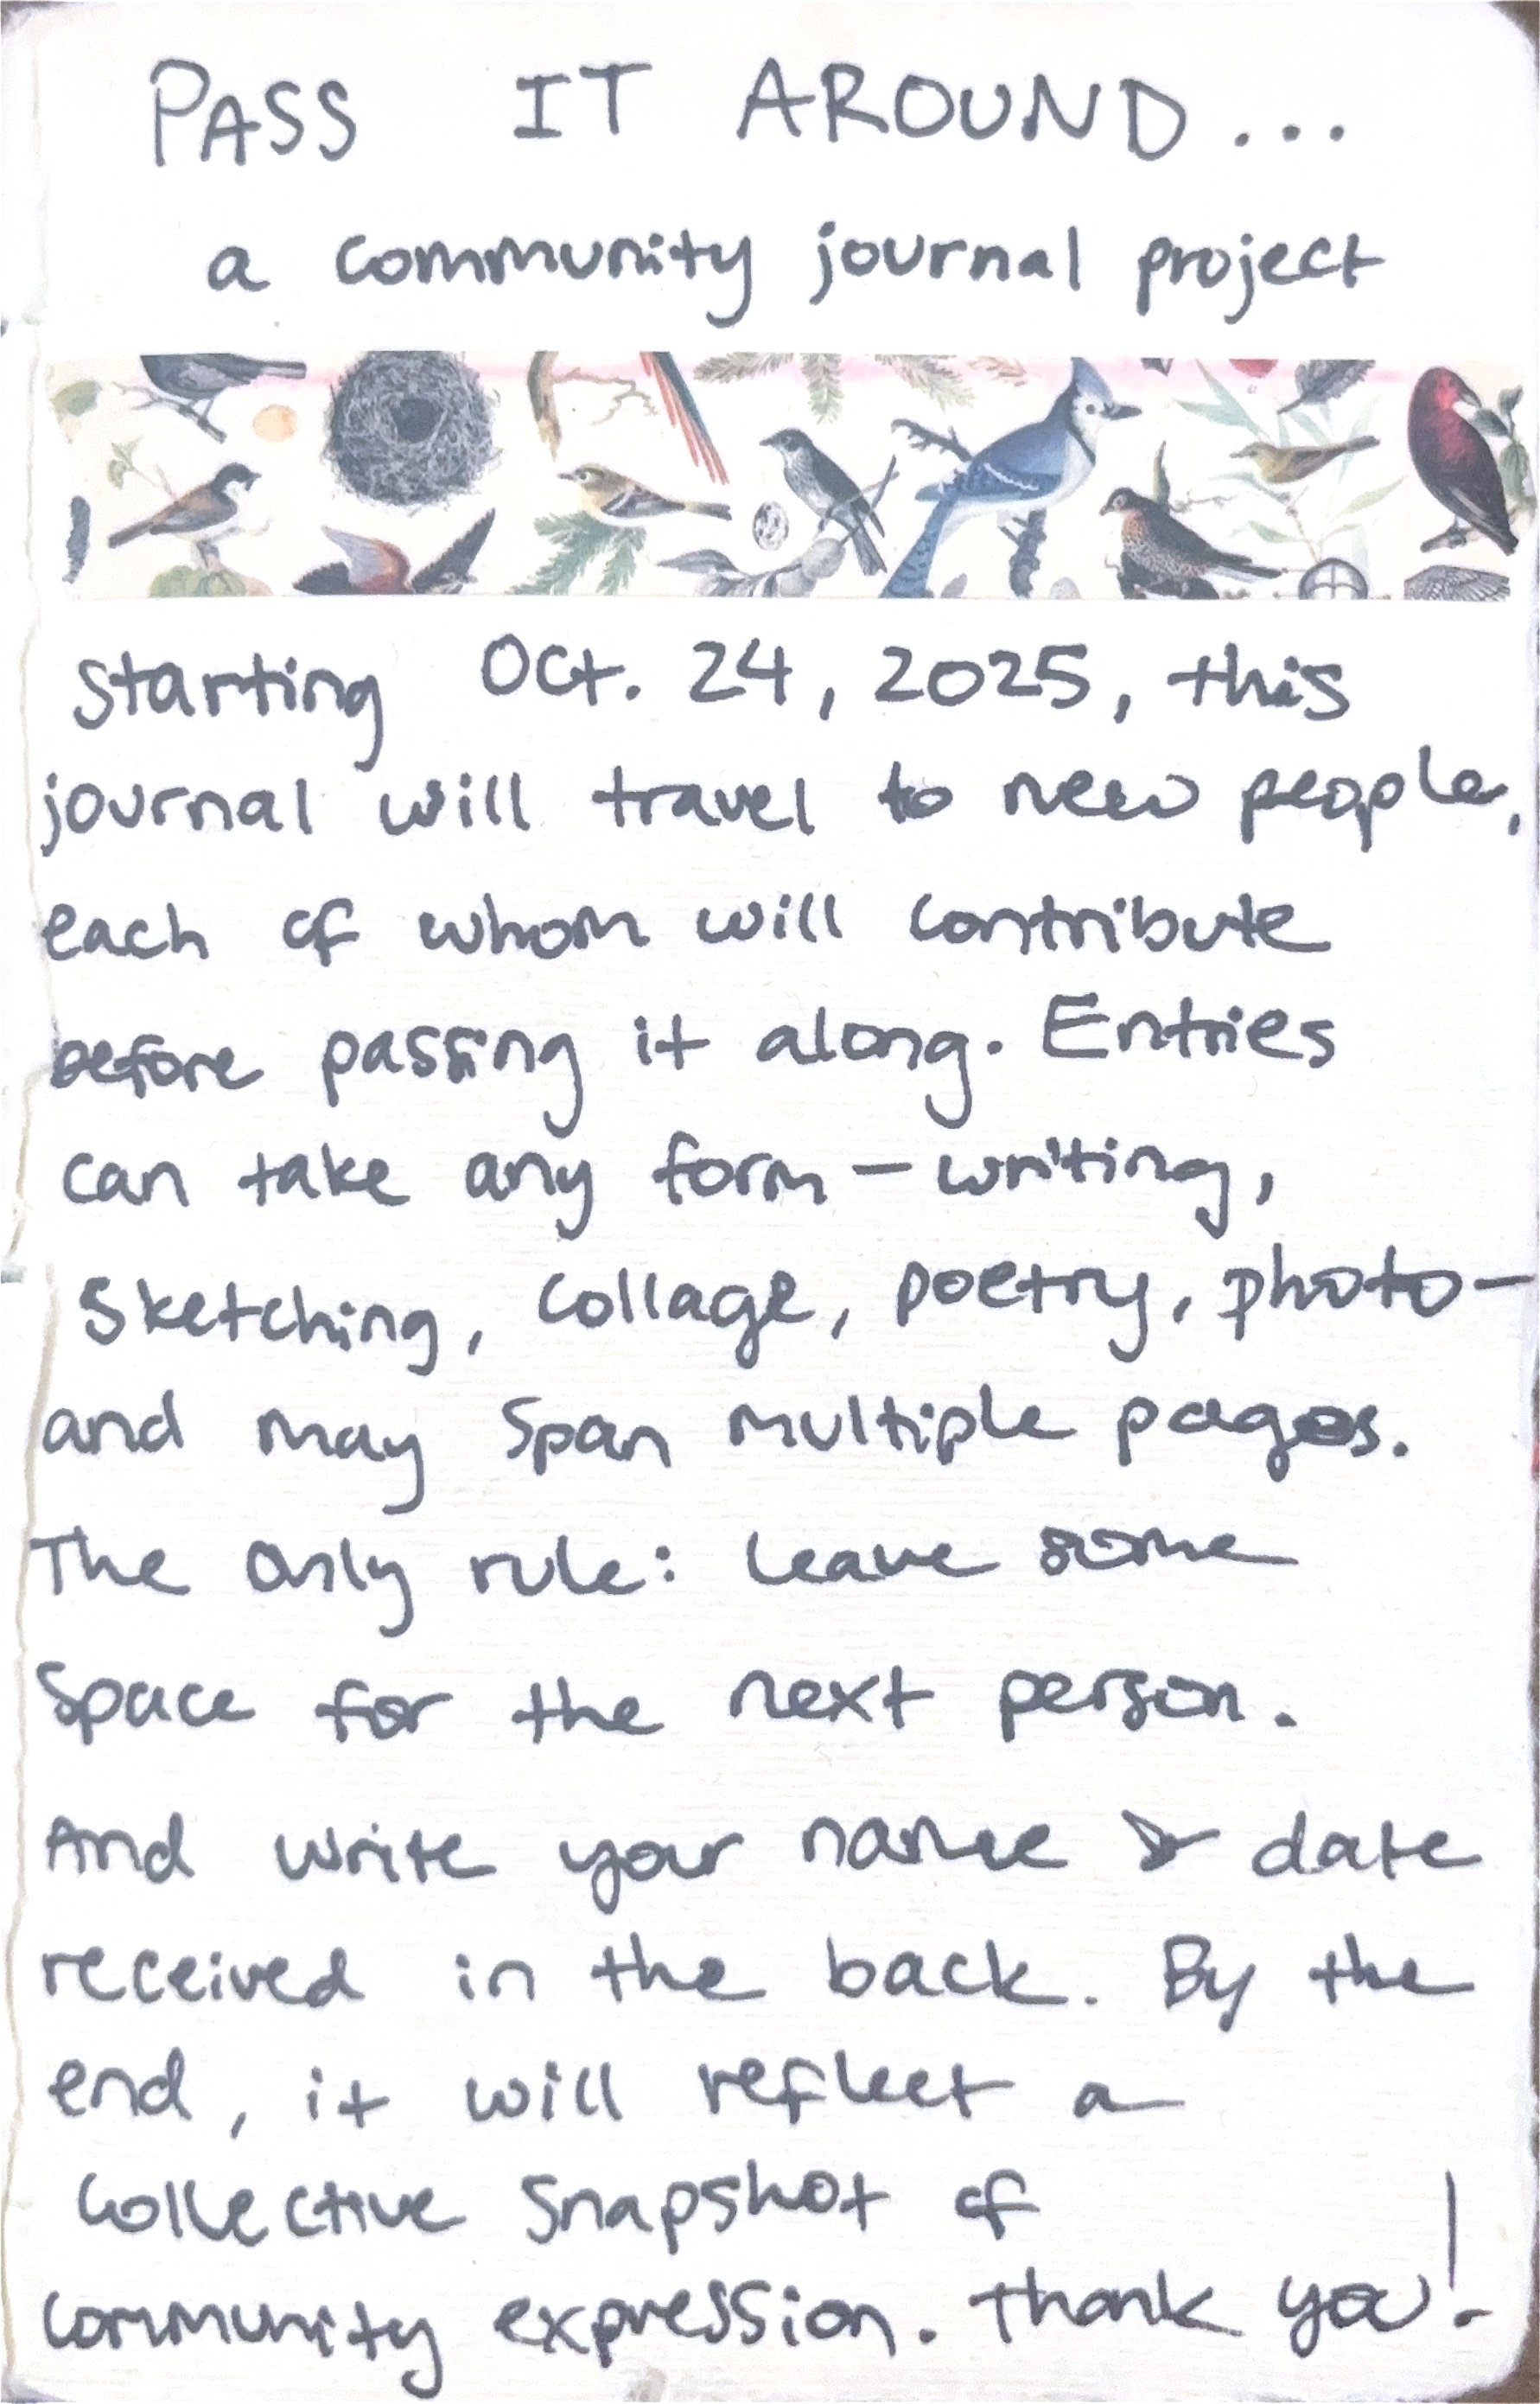 PASS IT AROUND...
a community journal project
Starting Oct. 24, 2025, this
journal will travel to new people,
each of whom will contribute
before passing it along. Entries
can take any form – writing,
Sketching, collage, poetry, photo –
and may span multiple pages.
The only rule: leave some
Space for the next person.
And write your name & date
received in the back. By the
end, it will reflect a
Collective Snapshot of
community expression. Thank you!